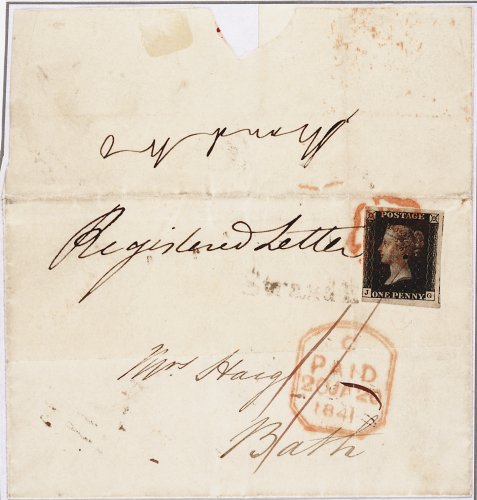 Registered Letter
POSTAGE
J ONE PENNY G
Strand
C
PAID
1841
Mrs Haig
Bath